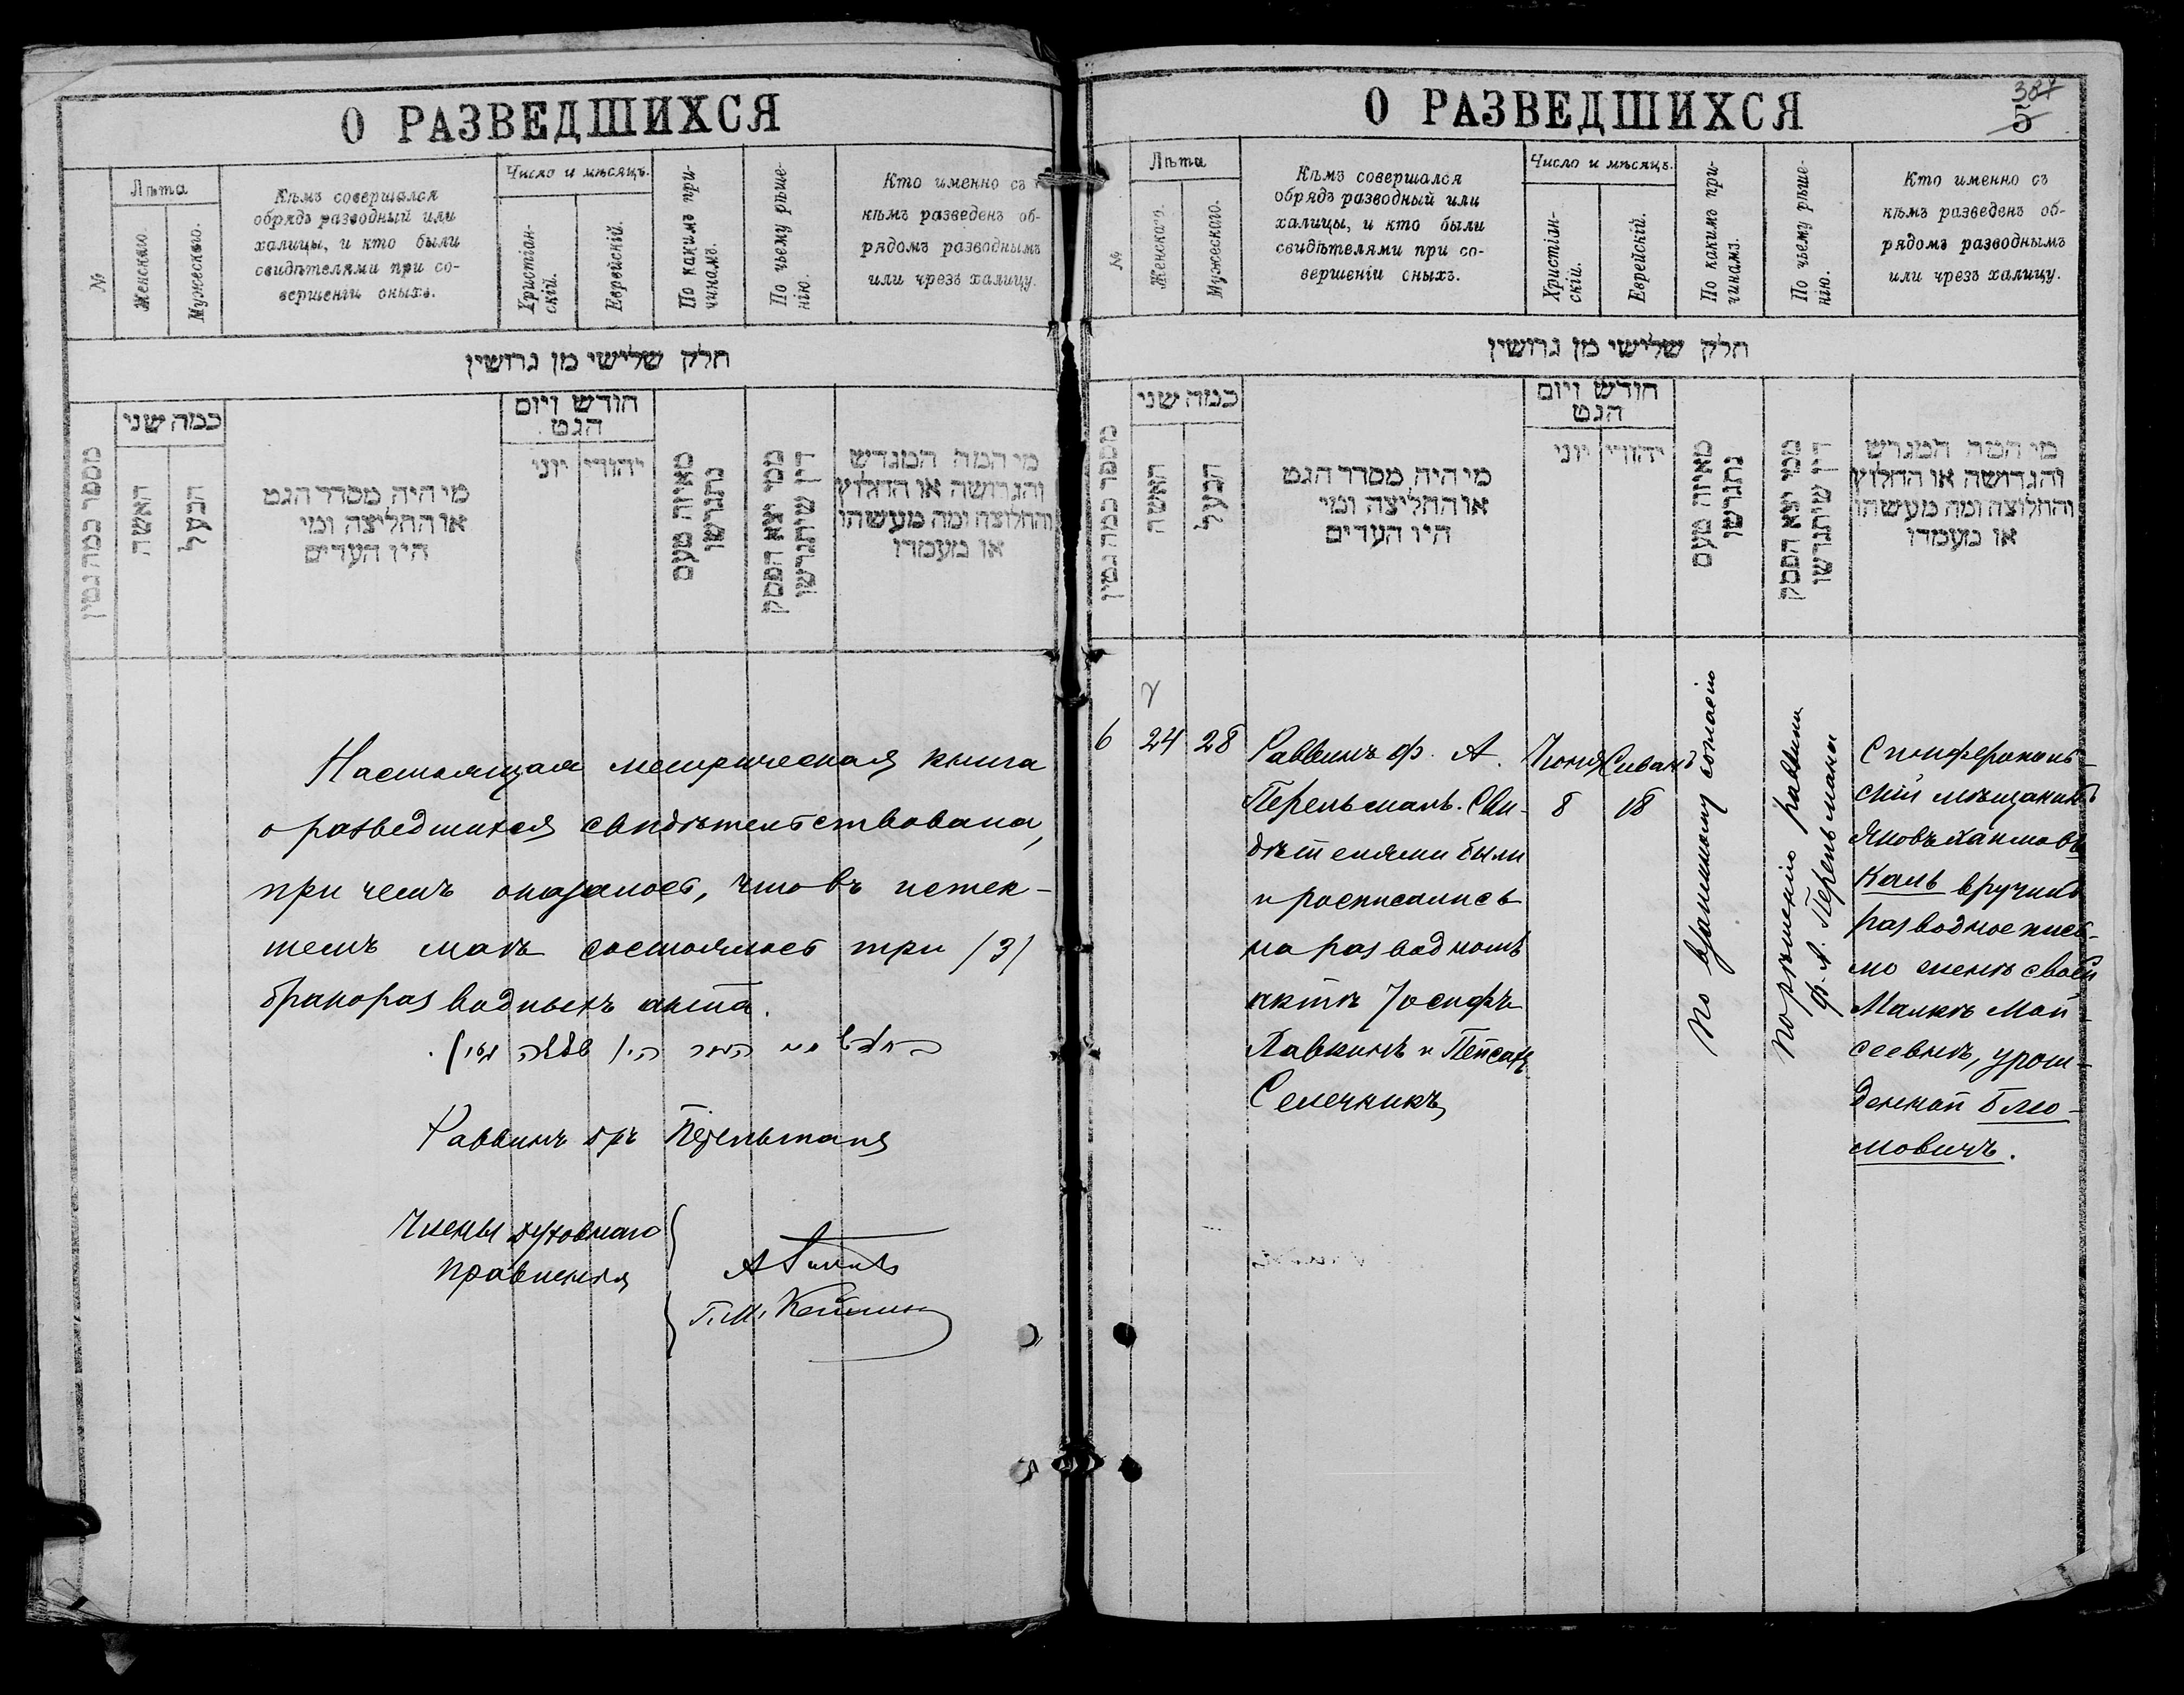 О РАЗВЕДШИХСЯ
№
Лѣта
Женскаго.
Мужескаго.
Кѣмъ совершался
обрядъ разводный или
халицы, и кто были
свидѣтелями при со-
вершеніи оныхъ.
Число и мѣсяцъ.
Христіан-
скій.
Еврейскій.
По какимъ при-
чинамъ.
По чьему рѣше-
нію.
Кто именно съ
кѣмъ разведенъ об-
рядомъ разводнымъ
или чрезъ халицу.
חלק שלישי מן גרושין
מספר כמה גטין
כמה שני
האשה
הבעל
מי היה מסדר הגט
או החליצה ומי
היו העדים
חודש ויום
הגט
יהודי
יוני
מאיזה טעם
נתגרשו
ממי יצא הפסק
דין שיתגרשו
מי המה המגרש
והגרושה או החלוץ
והחלוצה ומה מעשהו
או מעמדו
Настоящая метрическая книга
о разведшихся свидѣтельствована,
при чемъ оказалось, что въ истек-
шемъ маѣ состоялось три /3/
бракоразводныхъ акта.
Раввинъ Перельманъ
Члены духовнаго
правленія
О РАЗВЕДШИХСЯ
387
5
№
Лѣта
Женскаго.
Мужескаго.
Кѣмъ совершался
обрядъ разводный или
халицы, и кто были
свидѣтелями при со-
вершеніи оныхъ.
Число и мѣсяцъ.
Христіан-
скій.
Еврейскій.
По какимъ при-
чинамъ.
По чьему рѣше-
нію.
Кто именно съ
кѣмъ разведенъ об-
рядомъ разводнымъ
или чрезъ халицу.
חלק שלישי מן גרושין
מספר כמה גטין
כמה שני
האשה
הבעל
מי היה מסדר הגט
או החליצה ומי
היו העדים
חודש ויום
הגט
יהודי
יוני
מאיזה טעם
נתגרשו
ממי יצא הפסק
דין שיתגרשו
מי המה המגרש
והגרושה או החלוץ
והחלוצה ומה מעשהו
או מעמדו
6
24
28
Раввинъ ф. А.
Перельманъ. Сви-
дѣтелями были
и росписались
на разводномъ
актѣ Іосифъ
Лавкинъ и Пейсахъ
Селечникъ
Іюня
8
Сиванъ
18
По взаимному согласію
По рѣшенію раввина
ф. А. Перельмана
Симферополь-
скій мѣщанинъ
Яковъ Хаимовъ
Каль вручилъ
разводное пись-
мо женѣ своей
Малкѣ Мой-
сеевнѣ, урож-
денной Блю-
мовичъ.